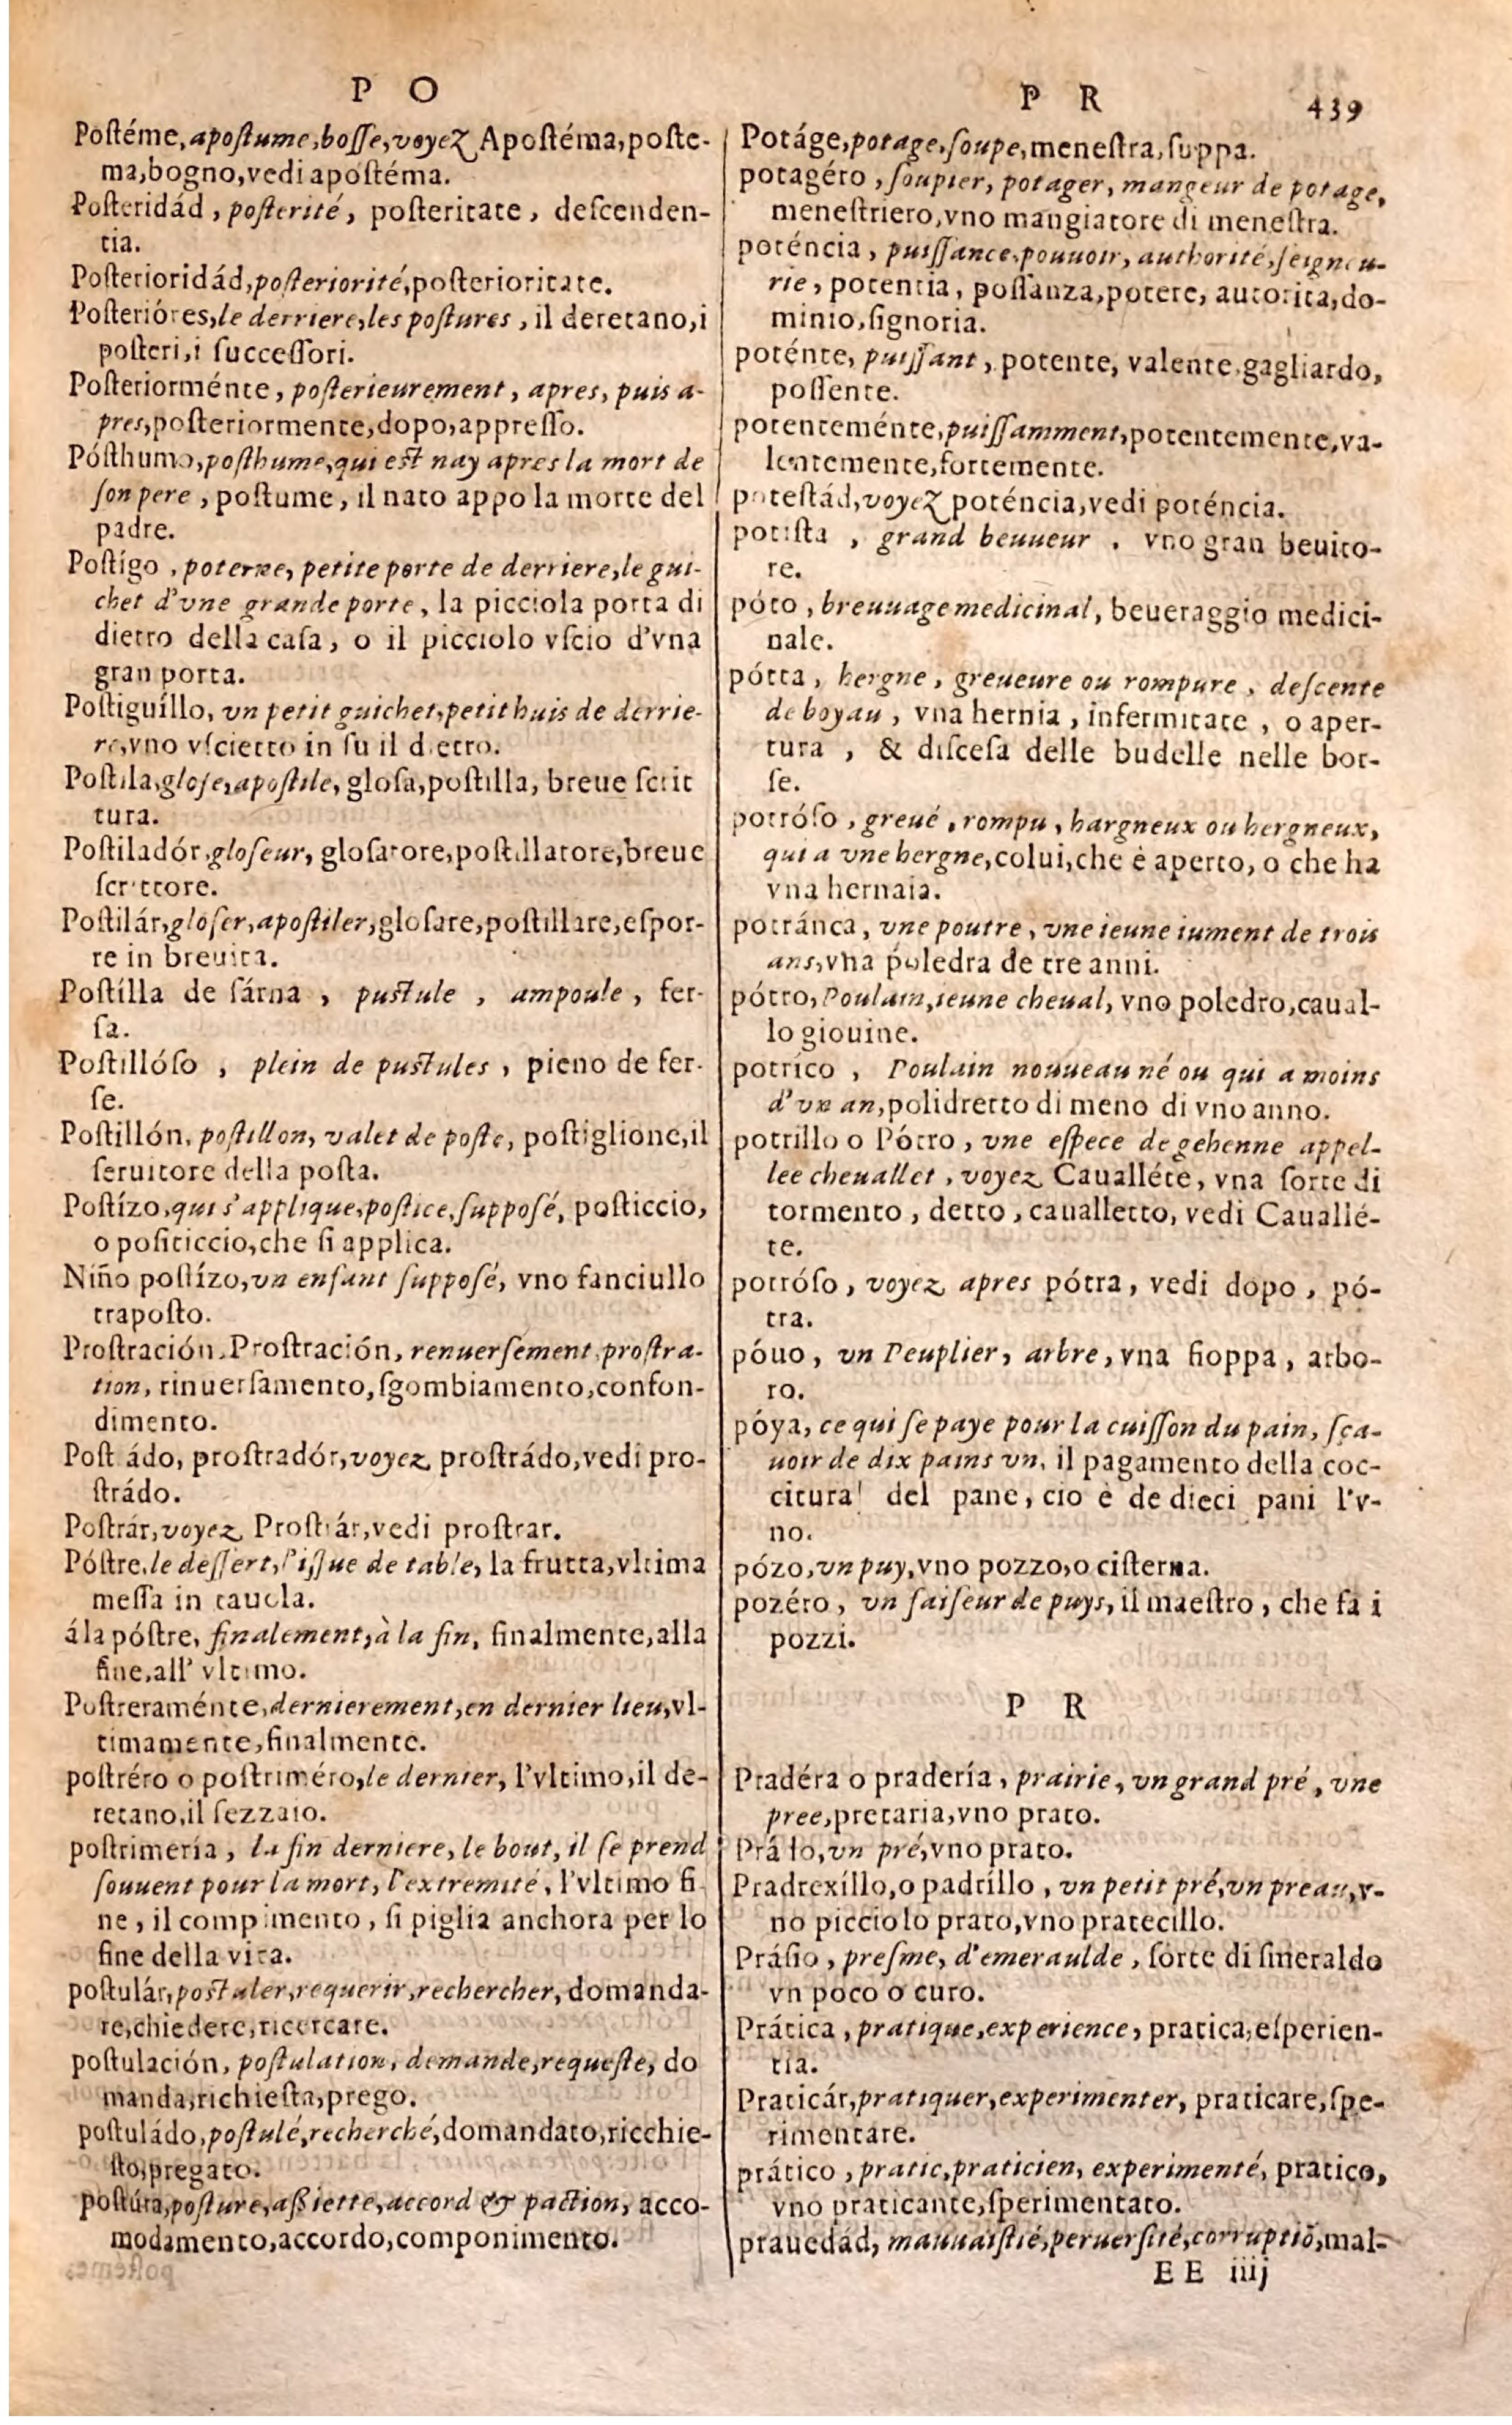 P O
Postéme, apostume, bosse, voyez Apostéma, poste-
ma, bogno, vedi apostéma.
Posteridád, posterité, posteritate, descenden-
tia.
Posterioridád, posteriorité, posterioritate.
Posterióres, le derriere, les postures, il deretano, i
posteri, i successori.
Posteriorménte, posterieurement, apres, puis a-
pres, posteriormente, dopo, appresso.
Pósthumo, posthume, qui est nay apres la mort de
son pere, postume, il nato appo la morte del
padre.
Postígo, poterne, petite porte de derriere, le gui-
chet d'vne grande porte, la picciola porta di
dietro della casa, o il picciolo vscio d'vna
gran porta.
Postiguíllo, vn petit guichet, petit huis de derrie-
re, vno vscietto in su il dietro.
Postila, glose, apostile, glosa, postilla, breue scrit
tura.
Postiladór, gloseur, glosatore, postillatore, breue
scrittore.
Postilár, gloser, apostiler, glosare, postillare, espor-
re in breuita.
Postílla de sárna, pustule, ampoule, fer-
sa.
Postillóso, plein de pustules, pieno de fer-
se.
Postillón, postillon, valet de poste, postiglione, il
seruitore della posta.
Postízo, qui s'applique, postice, supposé, posticcio,
o positiccio, che si applica.
Niño postízo, vn enfant supposé, vno fanciullo
traposto.
Prostración, Prostración, renuersement, prostra-
tion, rinuersamento, sgombiamento, confon-
dimento.
Post ádo, prostradór, voyez prostrádo, vedi pro-
strádo.
Postrár, voyez Prostrár, vedi prostrar.
Póstre, le dessert, l'issue de table, la frutta, vltima
messa in tauola.
á la póstre, finalement, à la fin, finalmente, alla
fine, all' vltimo.
Postreraménte, dernierement, en dernier lieu, vl-
timamente, finalmente.
postréro o postriméro, le dernier, l'vltimo, il de-
retano, il sezzaio.
postrimería, la fin derniere, le bout, il se prend
souuent pour la mort, l'extremité, l'vltimo fi
ne, il compimento, si piglia anchora per lo
fine della vita.
postulár, postuler, requerir, rechercher, domanda-
re, chiedere, ricercare.
postulación, postulation, demande, requeste, do
manda, richiesta, prego.
postuládo, postulé, recherché, domandato, ricchie-
sto, pregato.
postúra, posture, assiette, accord & paction, acco-
modamento, accordo, componimento.
P R 439
Potáge, potage, soupe, menestra, suppa.
potagéro, soupier, potager, mangeur de potage,
menestriero, vno mangiatore di menestra.
poténcia, puissance, pouuoir, authorité, seigneu-
rie, potentia, possanza, potere, autorita, do-
minio, signoria.
poténte, puissant, potente, valente, gagliardo,
possente.
potenteménte, puissamment, potentemente, va-
lentemente, fortemente.
potestád, voyez poténcia, vedi poténcia.
potista, grand beuueur, vno gran beuito-
re.
póto, breuuage medicinal, beueraggio medici-
nale.
pótta, hergne, greueure ou rompure, descente
de boyau, vna hernia, infermitate, o aper-
tura, & discesa delle budelle nelle bor-
se.
potróso, greué, rompu, hargneux ou hergneux,
qui a vne hergne, colui, che è aperto, o che ha
vna hernaia.
potránca, vne poutre, vne ieune iument de trois
ans, vna poledra de tre anni.
pótro, Poulain, ieune cheual, vno poledro, caual-
lo giouine.
potríco, Poulain nouueau né ou qui a moins
d'vn an, polidretto di meno di vno anno.
potrillo o Pótro, vne espece de gehenne appel-
lee cheuallet, voyez Cauálléte, vna sorte di
tormento, detto, caualletto, vedi Cauallé-
te.
potróso, voyez apres pótra, vedi dopo, pó-
tra.
póuo, vn Peuplier, arbre, vna fioppa, arbo-
ro.
póya, ce qui se paye pour la cuisson du pain, sça-
uoir de dix pains vn, il pagamento della coc-
citura del pane, cio è de dieci pani l'v-
no.
pózo, vn puy, vno pozzo, o cisterna.
pozéro, vn faiseur de puys, il maestro, che fa i
pozzi.
P R
Pradéra o pradería, prairie, vn grand pré, vne
pree, pretaria, vno prato.
Prádo, vn pré, vno prato.
Pradrexíllo, o padríllo, vn petit pré, vn preau, v-
no picciolo prato, vno pratecillo.
Prásio, presme, d'emeraulde, sorte di smeraldo
vn poco o curo.
Prática, pratique, experience, pratica, esperien-
tia.
Praticár, pratiquer, experimenter, praticare, spe-
rimentare.
prático, pratic, praticien, experimenté, pratico,
vno praticante, sperimentato.
prauedád, mauuaistié, peruersité, corruptiõ, mal-
EE iiij